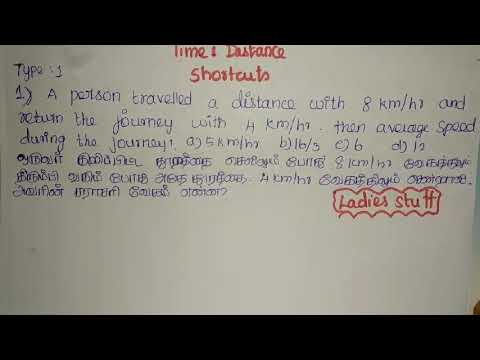 Time & Distance
Shortcuts
Type : 1
1) A person travelled a distance with 8 km/hr and
return the journey with 4 km/hr. then average speed
during the journey? a) 5 km/hr b) 16/3 c) 6 d) 12
ஒருவர் குறிப்பிட்ட தூரத்தை செல்லும் போது 8 km/hr வேகத்திலும்
திரும்பி வரும் போது அதே தூரத்தை 4 km/hr வேகத்திலும்
அவரின் சராசரி வேகம் என்ன?
Ladies stuff